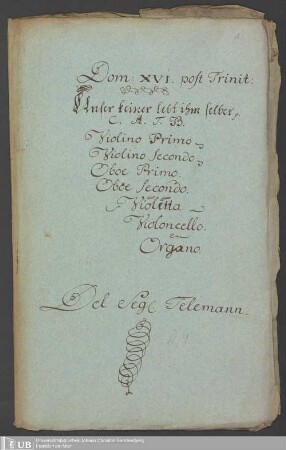 Dom: XVI. post Trinit:
Unser keiner lebt ihm selber,
C. A. T. B.
Violino Primo
Violino Secondo
Oboe Primo.
Oboe Secondo.
Violetta
Violoncello.
Organo.
Del Sigr. Telemann.
UB
Universitätsbibliothek Johann Christian Senckenberg
Frankfurt am Main